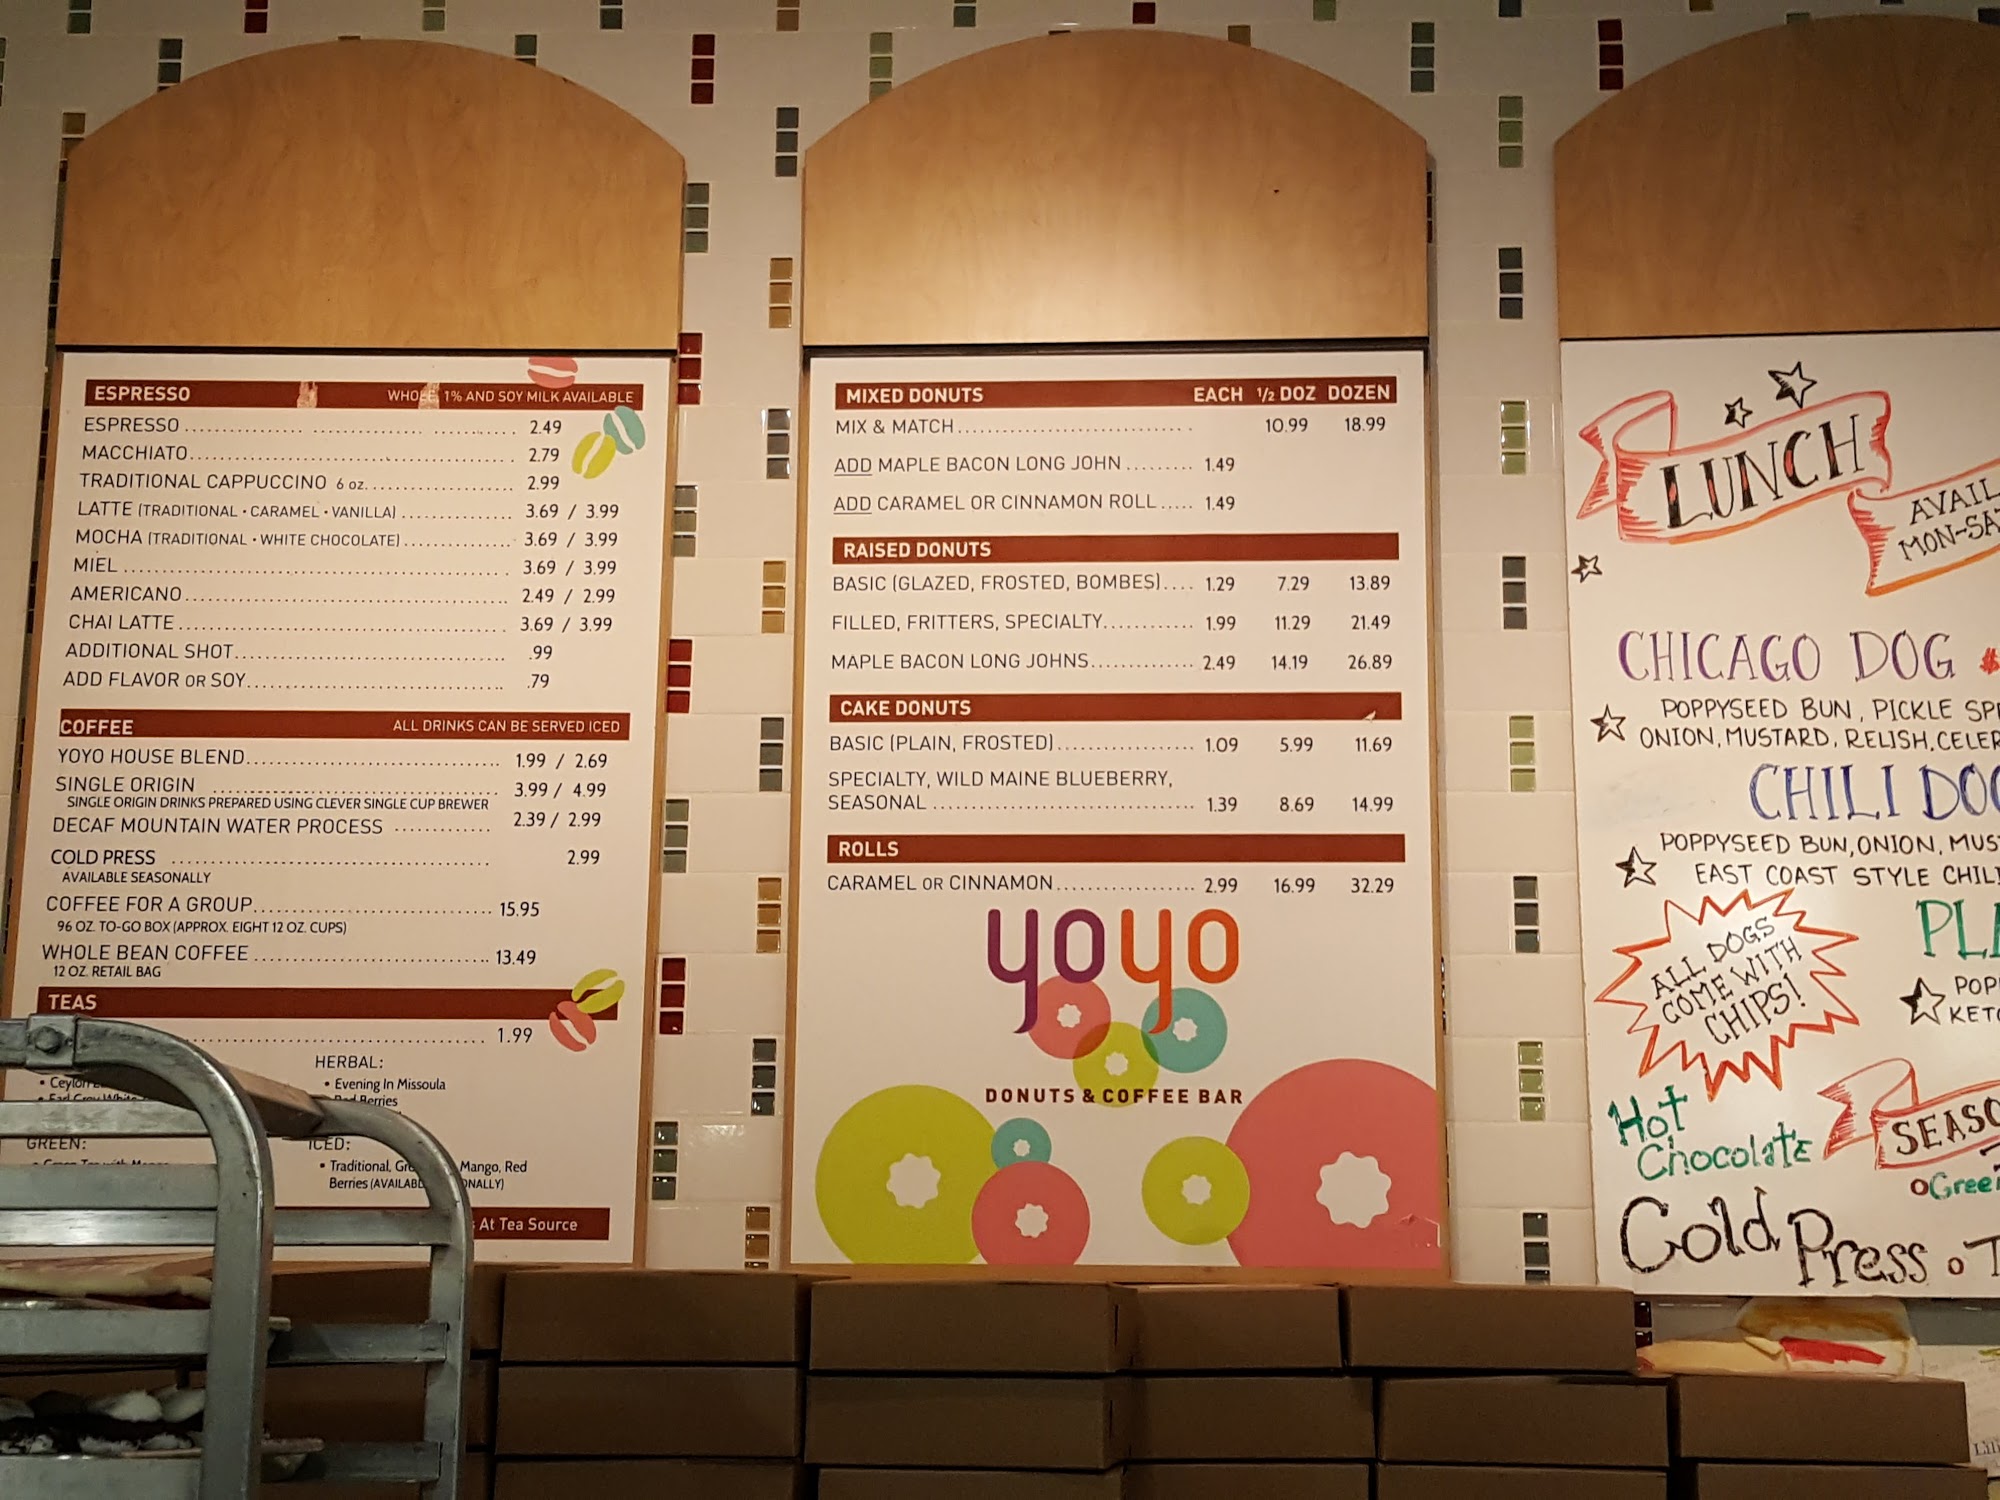 ESPRESSO WHOLE, 1% AND SOY MILK AVAILABLE
ESPRESSO 2.49
MACCHIATO 2.79
TRADITIONAL CAPPUCCINO 6 oz. 2.99
LATTE (TRADITIONAL • CARAMEL • VANILLA) 3.69 / 3.99
MOCHA (TRADITIONAL • WHITE CHOCOLATE) 3.69 / 3.99
MIEL 3.69 / 3.99
AMERICANO 2.49 / 2.99
CHAI LATTE 3.69 / 3.99
ADDITIONAL SHOT .99
ADD FLAVOR OR SOY .79
COFFEE ALL DRINKS CAN BE SERVED ICED
YOYO HOUSE BLEND 1.99 / 2.69
SINGLE ORIGIN 3.99 / 4.99
SINGLE ORIGIN DRINKS PREPARED USING CLEVER SINGLE CUP BREWER
DECAF MOUNTAIN WATER PROCESS 2.39 / 2.99
COLD PRESS 2.99
AVAILABLE SEASONALLY
COFFEE FOR A GROUP 15.95
96 OZ. TO-GO BOX (APPROX. EIGHT 12 OZ. CUPS)
WHOLE BEAN COFFEE 13.49
12 OZ. RETAIL BAG
TEAS
1.99
• Ceylon
• Earl Grey White
GREEN:
• Green Tea with Mango
HERBAL:
• Evening In Missoula
• Red Berries
ICED:
• Traditional, Mango, Red
Berries
At Tea Source
MIXED DONUTS EACH 1/2 DOZ DOZEN
MIX & MATCH 10.99 18.99
ADD MAPLE BACON LONG JOHN 1.49
ADD CARAMEL OR CINNAMON ROLL 1.49
RAISED DONUTS
BASIC (GLAZED, FROSTED, BOMBES) 1.29 7.29 13.89
FILLED, FRITTERS, SPECIALTY 1.99 11.29 21.49
MAPLE BACON LONG JOHNS 2.49 14.19 26.89
CAKE DONUTS
BASIC (PLAIN, FROSTED) 1.09 5.99 11.69
SPECIALTY, WILD MAINE BLUEBERRY,
SEASONAL 1.39 8.69 14.99
ROLLS
CARAMEL OR CINNAMON 2.99 16.99 32.29
yoyo
DONUTS & COFFEE BAR
LUNCH
AVAIL
MON-SAT
CHICAGO DOG
POPPYSEED BUN, PICKLE
ONION, MUSTARD, RELISH, CELER
CHILI DOG
POPPYSEED BUN, ONION, MUS
EAST COAST STYLE CHILI
PLA
POP
KETC
ALL DOGS
COME WITH
CHIPS!
Hot
Chocolate
SEASO
Green
Cold Press